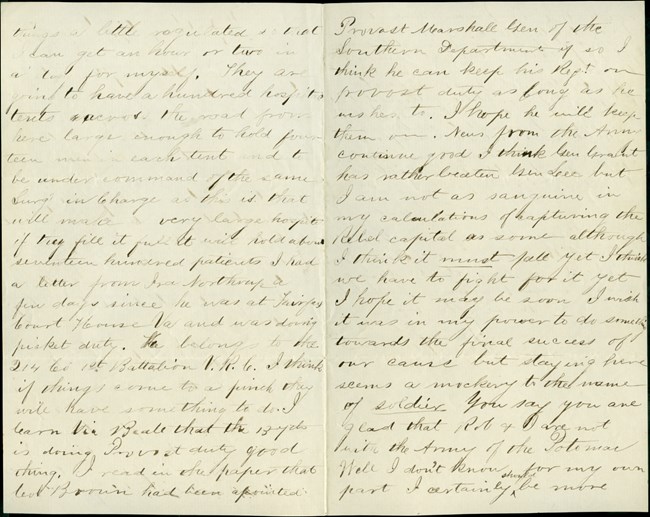 things a little regulated so that
I can get an hour or two in
a          for myself. They are
going to have a hundred hospital
tents across the road from
here large enough to hold four
teen men in each tent and to
be under command of the same
Surg in Charge as this is that
will make a very large hospit
if they fill it full it will hold about
seventeen hundred patients I had
a letter from Ira Northrup a
few days since he was at Fairfax
Court House Va and was doing
picket duty. He belongs to the
214 Co 1st Battalion V. R. C. I think
if things come to a pinch they
will have something to do. I
learn via Beale that the 13 yds
is doing Provost duty good
thing. I read in the paper that
Col Brown had been apointed
Provost Marshall Gen of the
Southern Department if so I
think he can keep his Regt on
provost duty as long as he
wishes to. I hope he will keep
them on. News from the Army
continue good I think Gen Grant
has rather beaten Gen Lee but
I am not as sanguine in
my calculations of capturing the
Rebel capital as some although
I think it must fall yet I think
we have to fight for it yet
I hope it may be soon I wish
it was in my power to do someth
towards the final success of
our cause but staying here
seems a mockery to the name
of soldier You say you are
glad that Rob & I are not
with the Army of the Potomac
Well I don't know for my own
part I certainly should be more